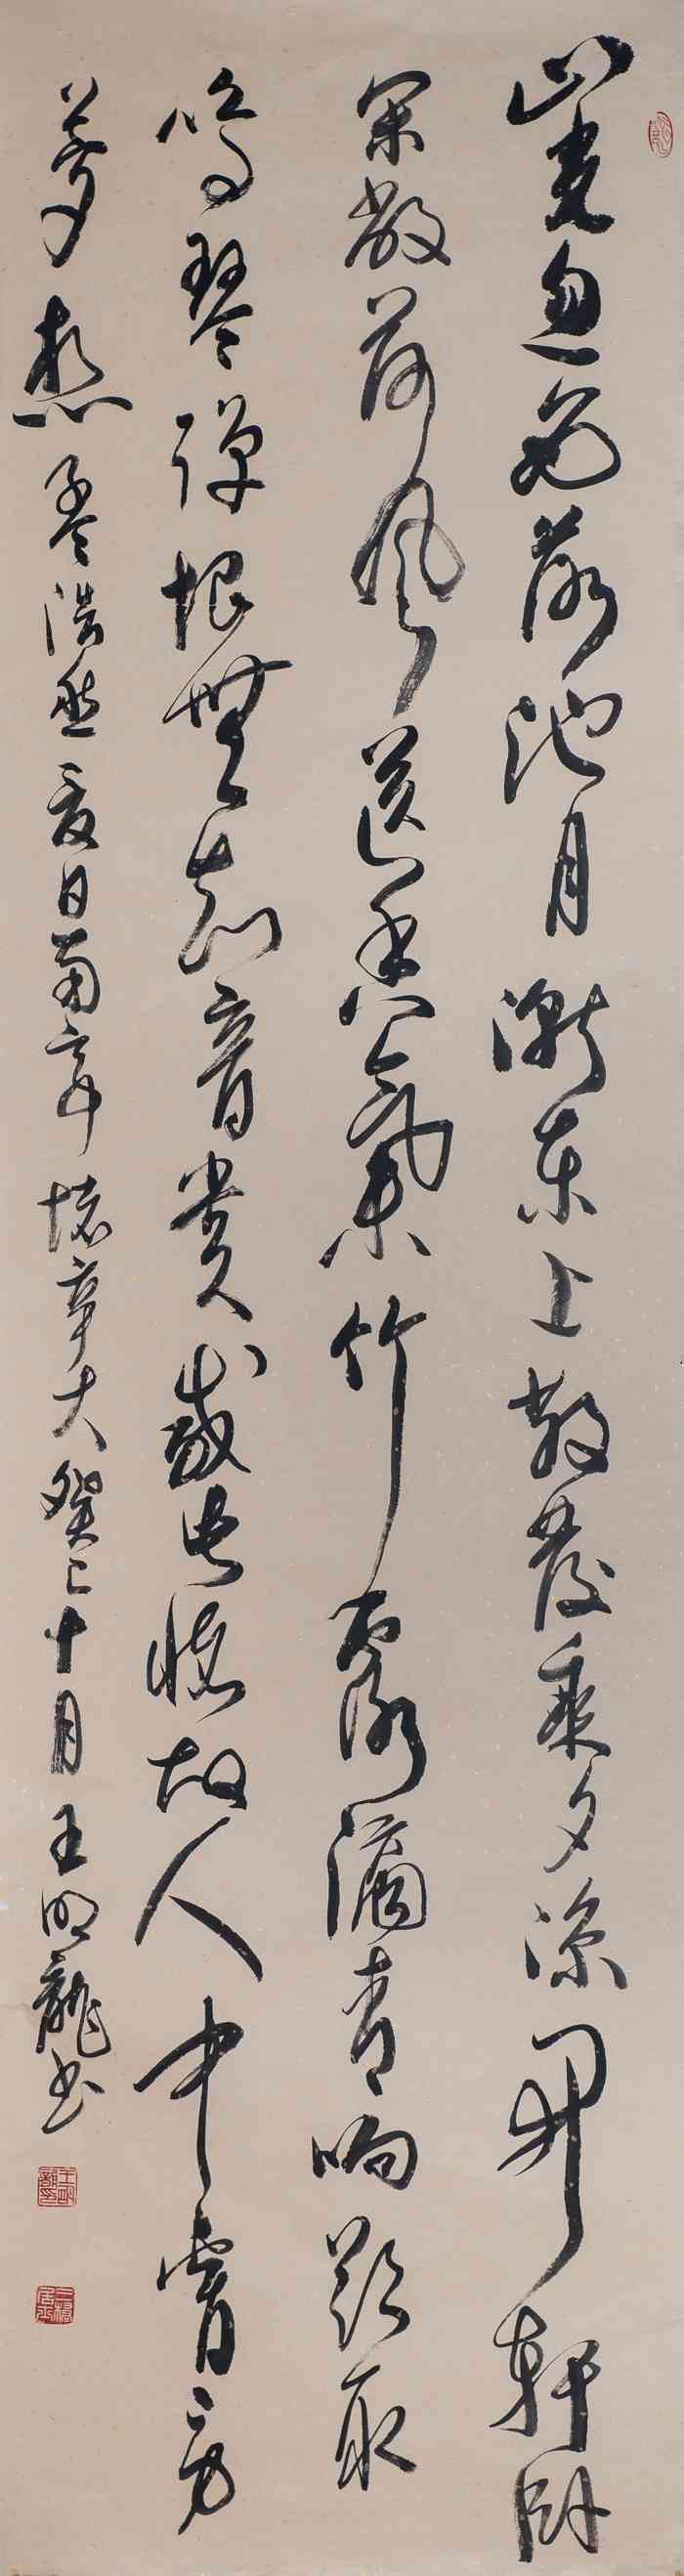 山光忽西落池月漸东上散发乘夕涼開軒卧
闲敞荷风送香氣竹露滴清响欲取
鳴琴弹恨無知音赏感此懷故人中宵劳
梦想 孟浩然夏日南亭懷辛大 癸巳十月王明龍书